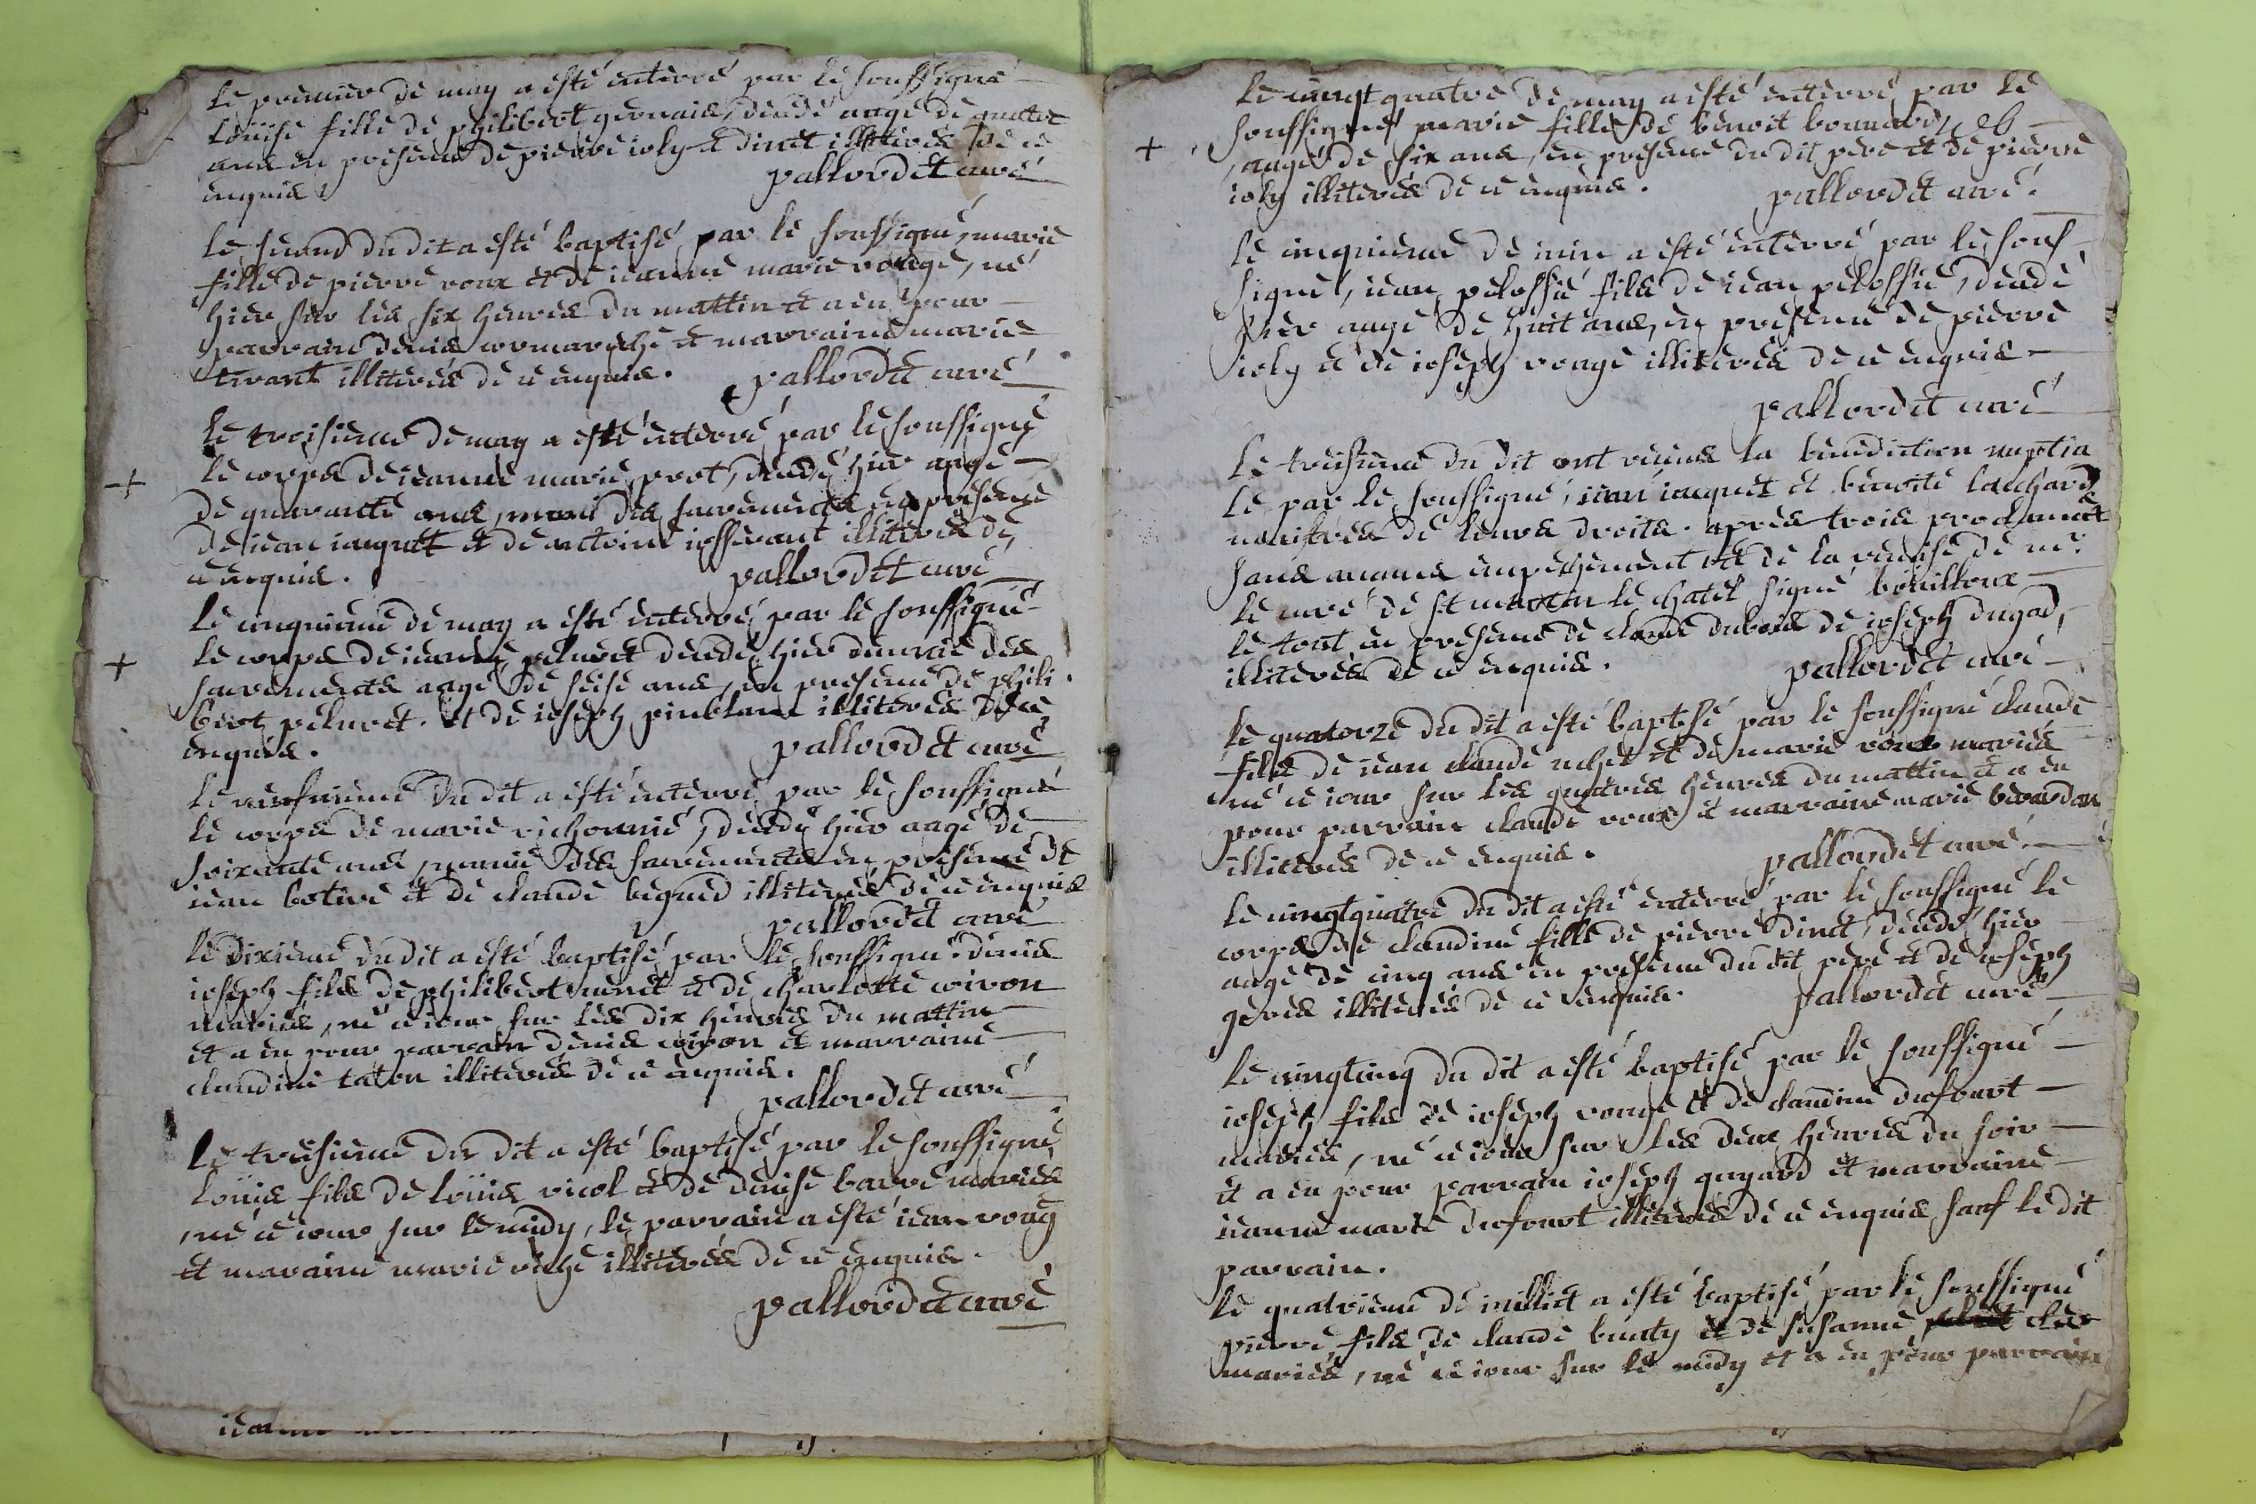 le premier de may a esté enterré par le soussigné
Loüise fille de philibert gervais, decedé aagé de quatre
ans en presence de pierre ioly et dinet illiterés de ce
enquis. pallordet curé
le second du dit a esté baptisé par le soussigné, marie
fille de pierre roux et de ieanne marie rouge, né
hier sur les six heures du mattin et a eu pour
parrain denis cormareche et marraine marie
tirant illiterés de ce enquis. pallordet curé
le troisieme de may a esté enterré par le soussigné
le corps de ieanne marie prost, decedé hier aagé
de quarante ans, muni des sacrements en presence
de iean iaquet et de antoine iosserant illiterés de
ce enquis. pallordet curé
le cinquieme de may a esté enterré par le soussigné
le corps de ieanne peluret decedé hier munie des
sacrements aagé de seise ans, en presence de phili
bert peluret. et de ioseph illiterés de ce
enquis. pallordet curé
le neufvieme du dit a esté enterré par le soussigné
le corps de marie richonnié, decedé hier aagé de
soixante ans, munie des sacrements en presence de
iean botire et de claude begued illiterés de ce enquis
pallordet curé
le dixieme du dit a esté baptisé par le soussigné denis
ioseph fils de philibert et de charlotte coiron
mariés, né ce iour sur les dix heures du mattin
et a eu pour parrain denis coiron et marraine
claudine taton illiterés de ce enquis.
pallordet curé
le treisieme du dit a esté baptisé par le soussigné
Loüis fils de Loüis ricol et de denise barre mariés
, né ce iour sur le midy, le parrain a esté iean roug
et maraine marie riche illiterés de ce enquis.
pallordet curé
ieanne
le vingt quatre de may a esté enterré par le
soussigné marie fille de benoit bonnard
, aagé de six ans, en presence du dit pere et de pierre
ioly illiterés de ce enquis. pallordet curé.
le cinquieme de iuin a esté enterré par le sous
signé, iean pelossié fils de iean pelossié, decedé
hier aagé de huit ans, en presence de pierre
ioly et de ioseph rouge illiterés de ce enquis
pallordet curé
le treisieme du dit ont receus la benediction nuptia
le par le soussigné, iean iaquet et benoite Lachard
maistres de leurs droits. apres trois proclamat
sans aucuns empechement veu de la remise de mr
le curé de st martin le chatel signé bouilloux
le tout en presence de claude dubois de ioseph dugad,
illiterés de ce enquis. pallordet curé
le quatorze du dit a esté baptisé par le soussigné claude
fils de iean claude et de marie roux mariés
né ce iour sur les quatres heures du mattin et a eu
pour parrain claude roux et marraine marie
illiterés de ce enquis. pallordet curé.
le vingtquatre du dit a esté enterré par le soussigné le
corps de claudine fille de pierre dinet, decedé hier
aagé de cinq ans en presence du dit pere et de ioseph
illiterés de ce enquis. pallordet curé
le vingtcinq du dit a esté baptisé par le soussigné
ioseph fils de ioseph rouge et de claudine dufourt
mariés, né ce iour sur les deux heures du soir
et a eu pour parrain ioseph guyard et marraine
ieanne marie dufourt illiterés de ce enquis sauf le dit
parrain.
le quatrieme de iuillet a esté baptisé par le soussigné
pierre fils de claude et de susanne
mariés, né ce iour sur le midy et a eu pour parrain